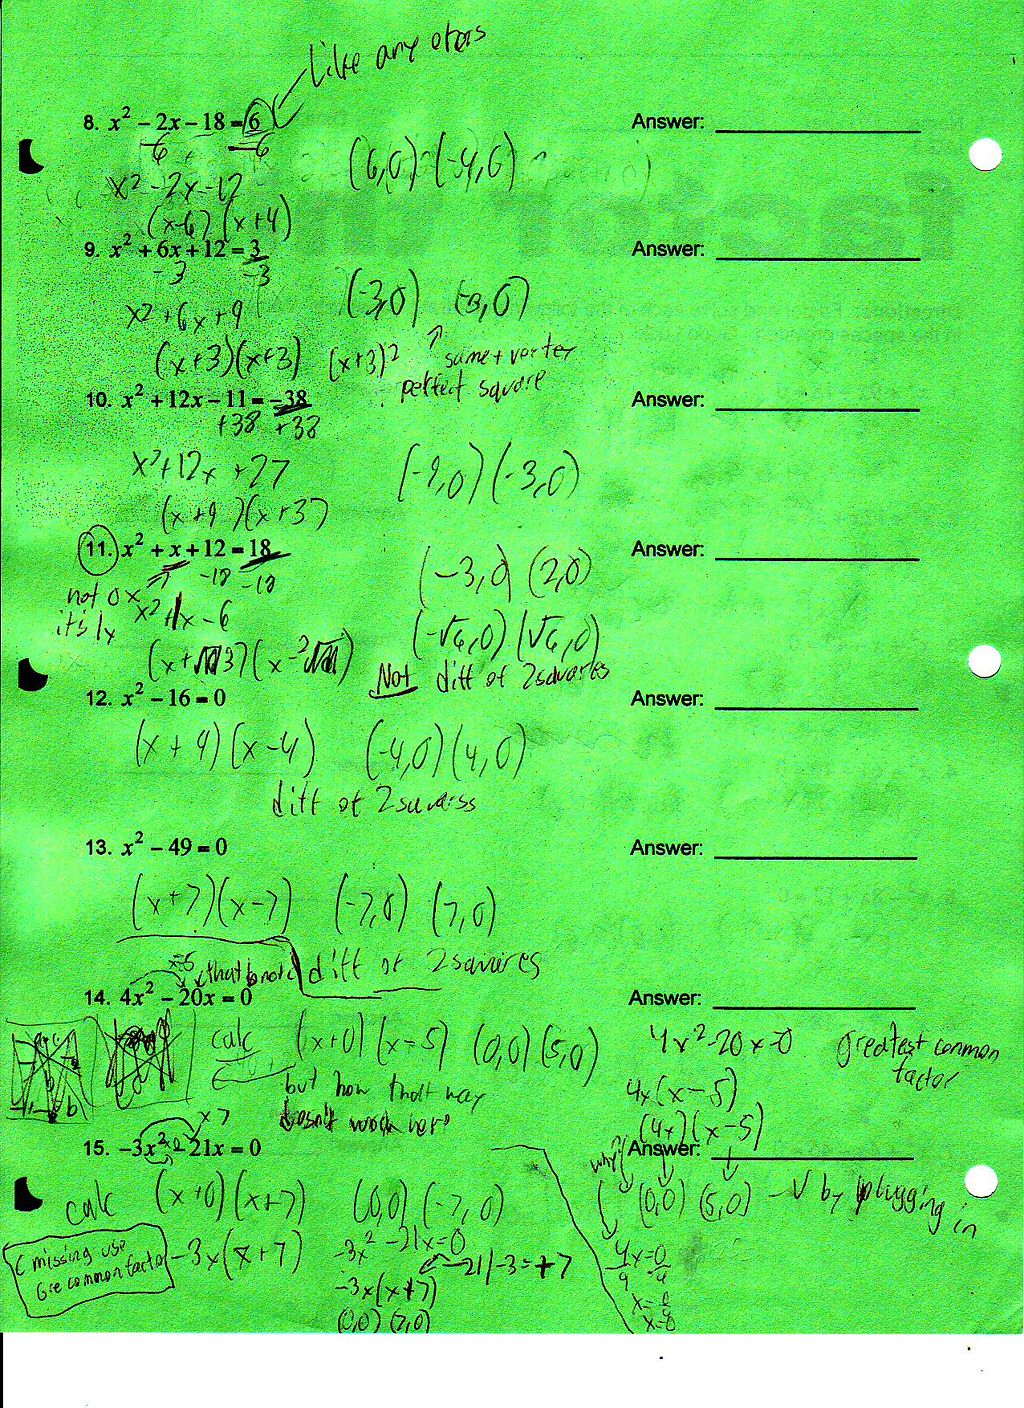 Like any others
8. x² − 2x − 18 = 6
Answer:
−6 −6
(6,0) (-4,0)
x² − 2x − 12
(x−6)(x+4)
9. x² + 6x + 12 = 3
Answer:
−3 −3
(-3,0) (-3,0)
x² + 6x + 9
(x+3)(x+3) (x+3)² same + vertex
perfect square
10. x² + 12x − 11 = −38
Answer:
+38 +38
x² + 12x + 27
(-9,0) (-3,0)
(x+9)(x+3)
11. x² + x + 12 = 18
Answer:
−18 −18
(-3,0) (2,0)
not 0x
it's 1x
x² + 1x − 6
(-√6,0) (√6,0)
(x+3)(x−2)
Not diff of 2 squares
12. x² − 16 = 0
Answer:
(x+4)(x−4) (-4,0) (4,0)
diff of 2 squares
13. x² − 49 = 0
Answer:
(x+7)(x−7) (-7,0) (7,0)
diff of 2 squares
x−5 that
14. 4x² − 20x = 0
Answer:
calc (x+0)(x−5) (0,0) (5,0)
4x² −20x=0 greatest common
factor
but how that way
doesn't work here
4x(x−5)
(4x)(x−5)
x7
15. −3x² − 21x = 0
Answer:
why?
calc (x+0)(x+7) (0,0) (-7,0)
(0,0) (5,0) −√ by plugging in
C missing use
Gre common factor
−3x(x+7)
−3x² −21x=0
−21/−3=+7
−3x(x+7)
(0,0) (7,0)
4x=0
x=
x=0